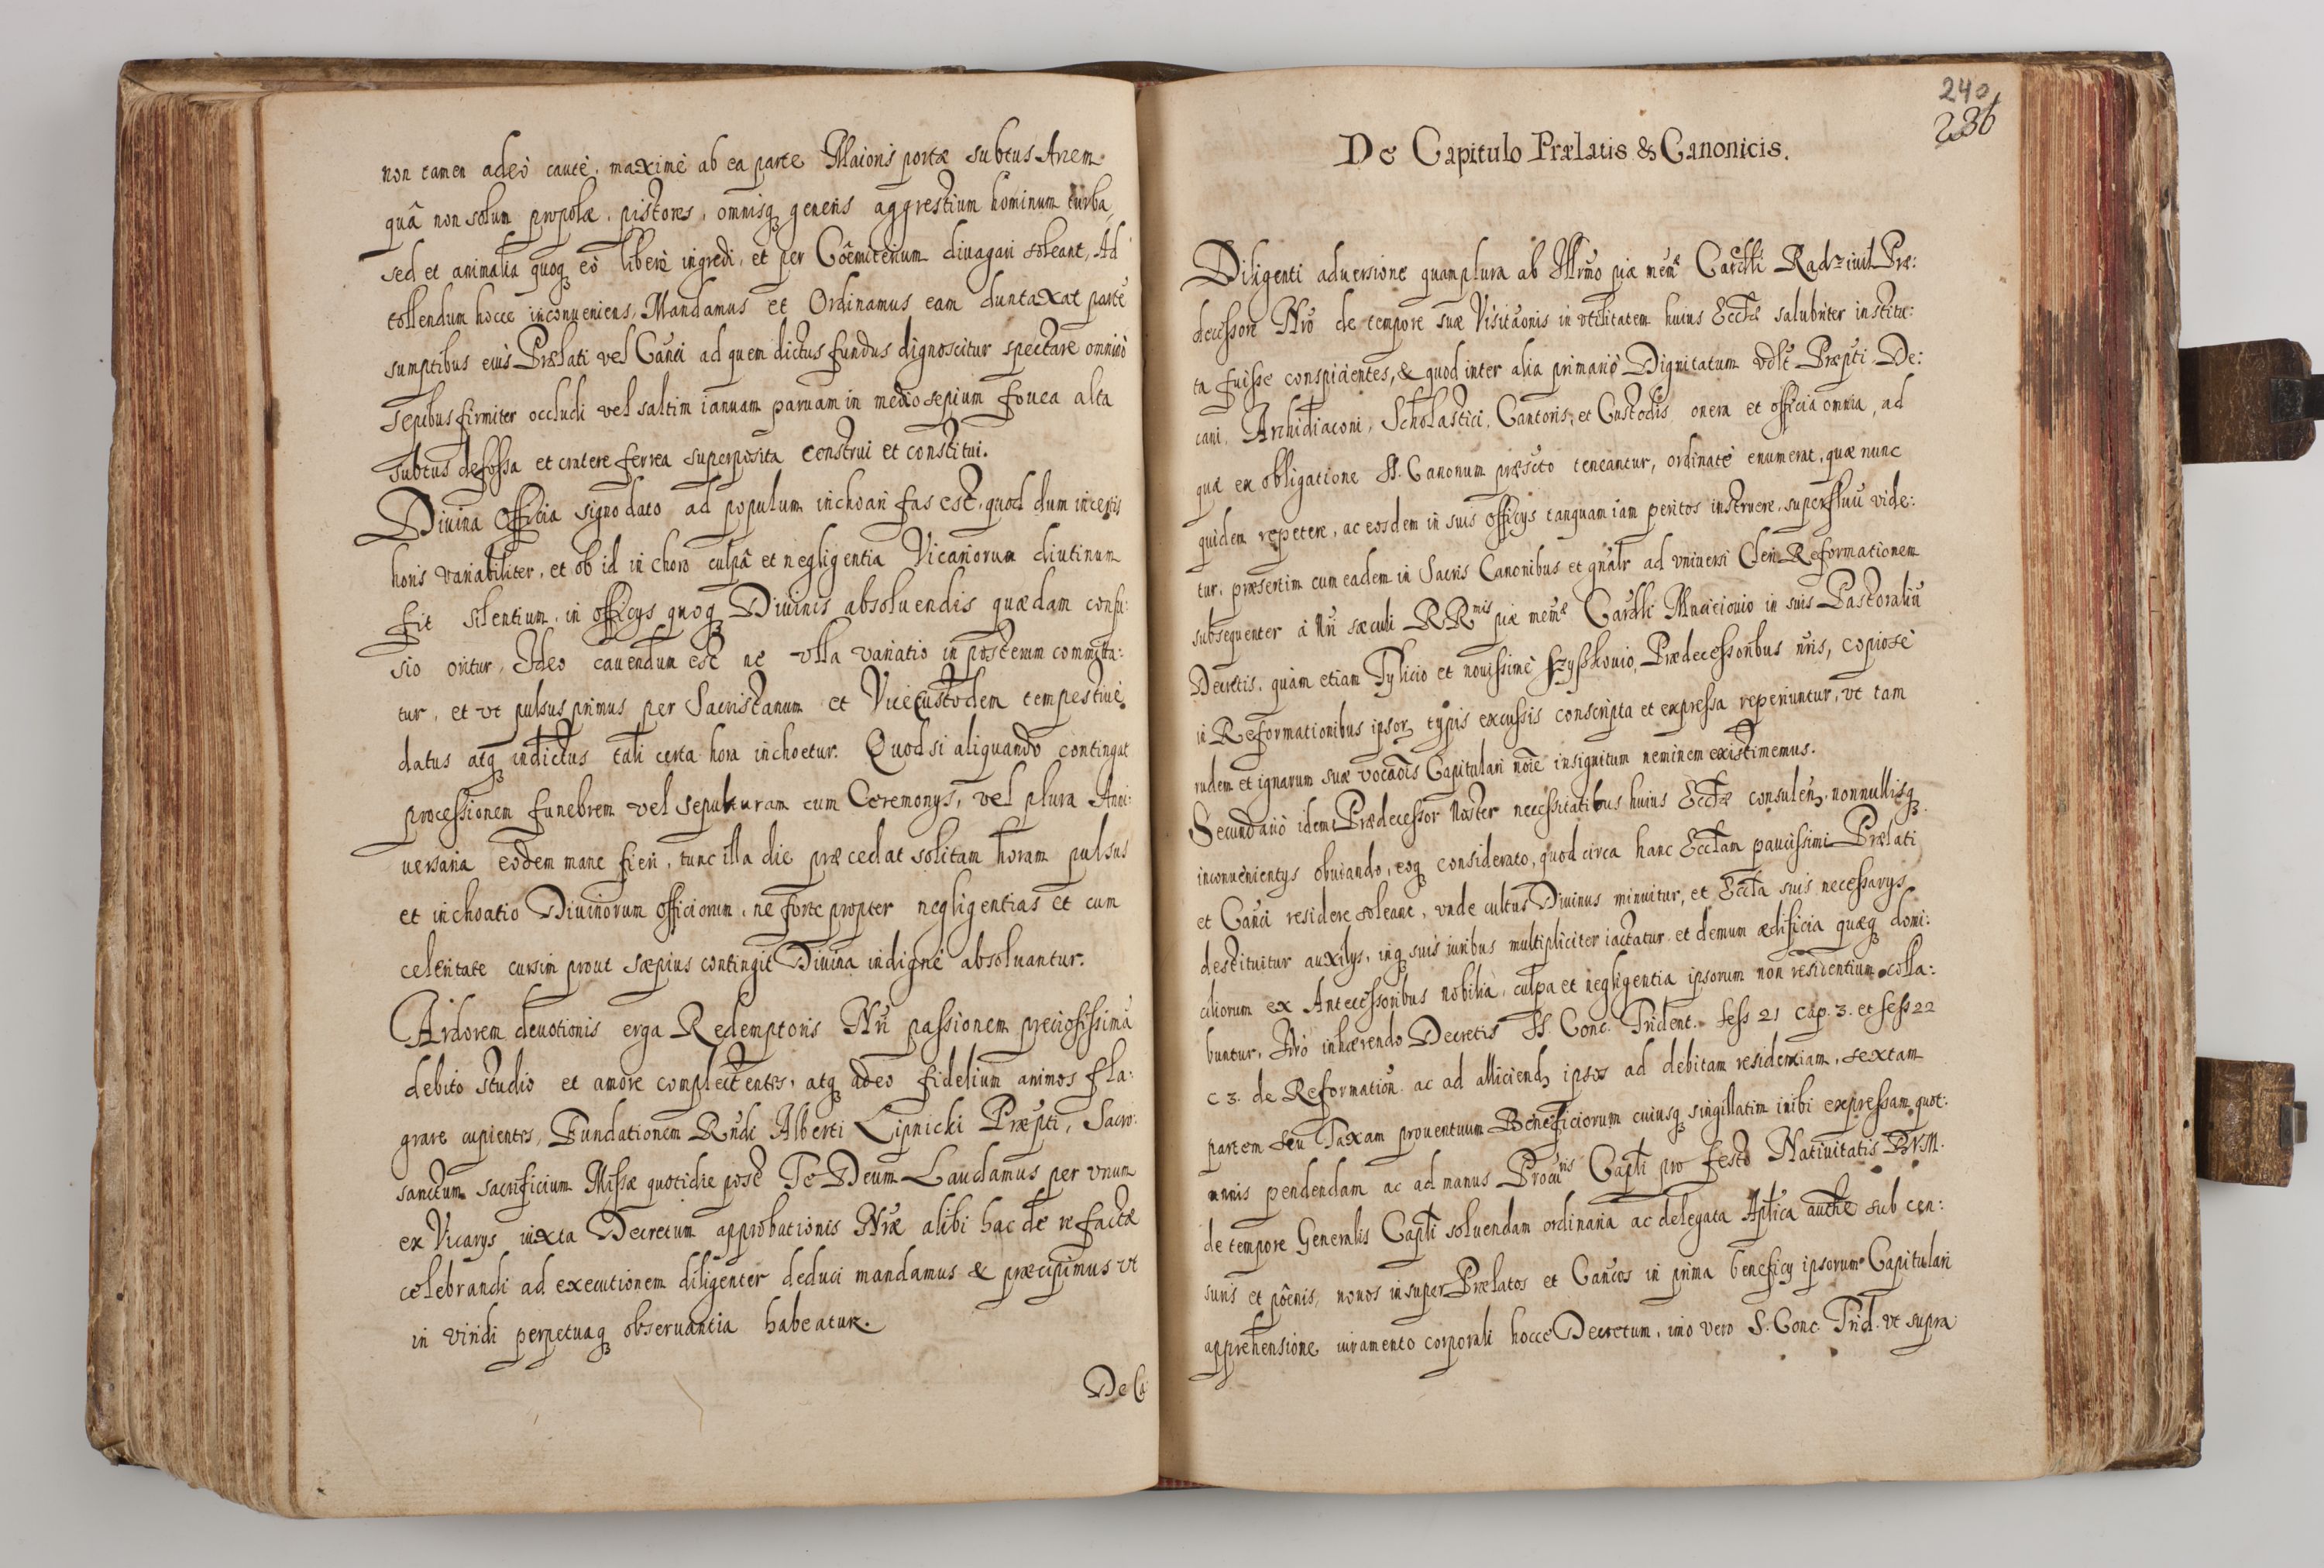 non tamen adeò cautè, maximè ab ea parte Maioris portæ subtus Arcem
quâ non solum propolæ, pistores, omnisq generis aggrestium hominum turba,
sed et animalia quoq eò liberè ingredi, et per Cœmiterium diuagari soleant, Ad
tollendum hocce inconueniens, Mandamus et Ordinamus eam duntaxat parte
sumptibus eius Prælati vel Canci ad quem dictus fundus dignoscitur spectare omninò
sepibus firmiter occludi vel saltim ianuam paruam in medio sepium fouea alta
subtus defossa et cratere ferrea superposita construi et constitui.
Diuina Officia signo dato ad populum inchoari fas est, quod dum incertis
horis variabiliter, et ob id in choro culpâ et negligentia Vicariorum diutinum
fit silentium, in officys quoq Diuinis absoluendis quædam confu:
sio oritur, Ideo cauendum est ne vlla variatio in posterum committa:
tur, et vt pulsus primus per Sacristanum et Vicecustodem tempestiuè
datus atq indictus tali certa hora inchoetur. Quod si aliquando contingat
processionem funebrem vel sepulturam cum Ceremonys, vel plura Anni:
uersaria eodem mane fieri, tunc illa die præcedat solitam horam pulsus
et inchoatio Diuinorum officiorum, ne forte propter negligentias et cum
celeritate cursim prout sæpius contingit Diuina indignè absoluantur.
Ardorem deuotionis erga Redemptoris Nri passionem preciosissima
debito studio et amore complectentes, atq adeo fidelium animos fla:
grare cupientes, Fundationem Rndi Alberti Lipnicki Præpti, Sacro:
sanctum sacrificium Missæ quotidie post Te Deum Laudamus per vnum
ex Vicarys iuxta Decretum approbationis Nræ alibi hac de re factæ
celebrandi ad executionem diligenter deduci mandamus & præcipimus vt
in viridi perpetuaq obseruantia habeatur.
De Ca
240
236
De Capitulo Prælatis & Canonicis.
Diligenti aduersione quamplura ab Illrmo piæ mem Cardli Radziuil Præ:
decessore Nro de tempore suæ Visitaonis in vtilitatem huius Ecclæ salubriter institu:
ta fuisse conspicientes, & quod inter alia primariò Dignitatum vdlt Præpti De:
cani, Archidiaconi, Scholastici, Cantoris, et Custodis onera et officia omnia, ad
quæ ex obligatione SS. Canonum præscto teneantur, ordinatè enumerat, quæ nunc
quidem repetere, ac eosdem in suis officys tanquam iam peritos instruere, superfluu vide:
tur, præsertim cum eadem in Sacris Canonibus et gnalr ad vniuersi Cleri Reformationem
subsequenter à Nri sæculi RR mis piæ mem Cardli Maciciouio in suis Pastoraliu
Decretis, quàm etiam Tylicio et nouissimè Szyszkouio, Prædecessoribus nris, copiosè
in Reformationibus ipsor typis excussis conscripta et expressa reperiuntur, vt tam
rudem et ignarum suæ vocaois Capitulari noie insignitum neminem existimemus.
Secundariò idem Prædecessor Noster necessitatibus huius Ecclæ consulen, nonnullisq
inconuenientys obuiando, eoq considerato, quod circa hanc Ecclam paucissimi Prælati
et Canci residere soleant, vnde cultus Diuinus minuitur, et Eccla suis necessarys
destituitur auxilys, inq suis iuribus multipliciter iactatur et demum ædificia quæq domi:
ciliorum ex Antecessoribus nobilia, culpa et negligentia ipsorum non residentium colla:
buntur, Idrò inhærendo Decretis SS. Conc. Trident. Sess 21 Cap. 3. et Sess 22
c 3. de Reformation ac ad alliciend ipsos ad debitam residentiam, sextam
partem seu Taxam prouentuum Beneficiorum cuiusq singillatim inibi expressam quot:
annis pendendam ac ad manus Procuris Capli pro festo Natiuitatis BVM.
de tempore Generalis Capli soluendam ordinaria ac delegata Aplica authe sub cen:
suris et pœnis, nouos insuper Prælatos et Cancos in prima beneficy ipsorum Capitulari
apprehensione iuramento corporali hocce Decretum, imò vero S. Conc. Trid. vt supra